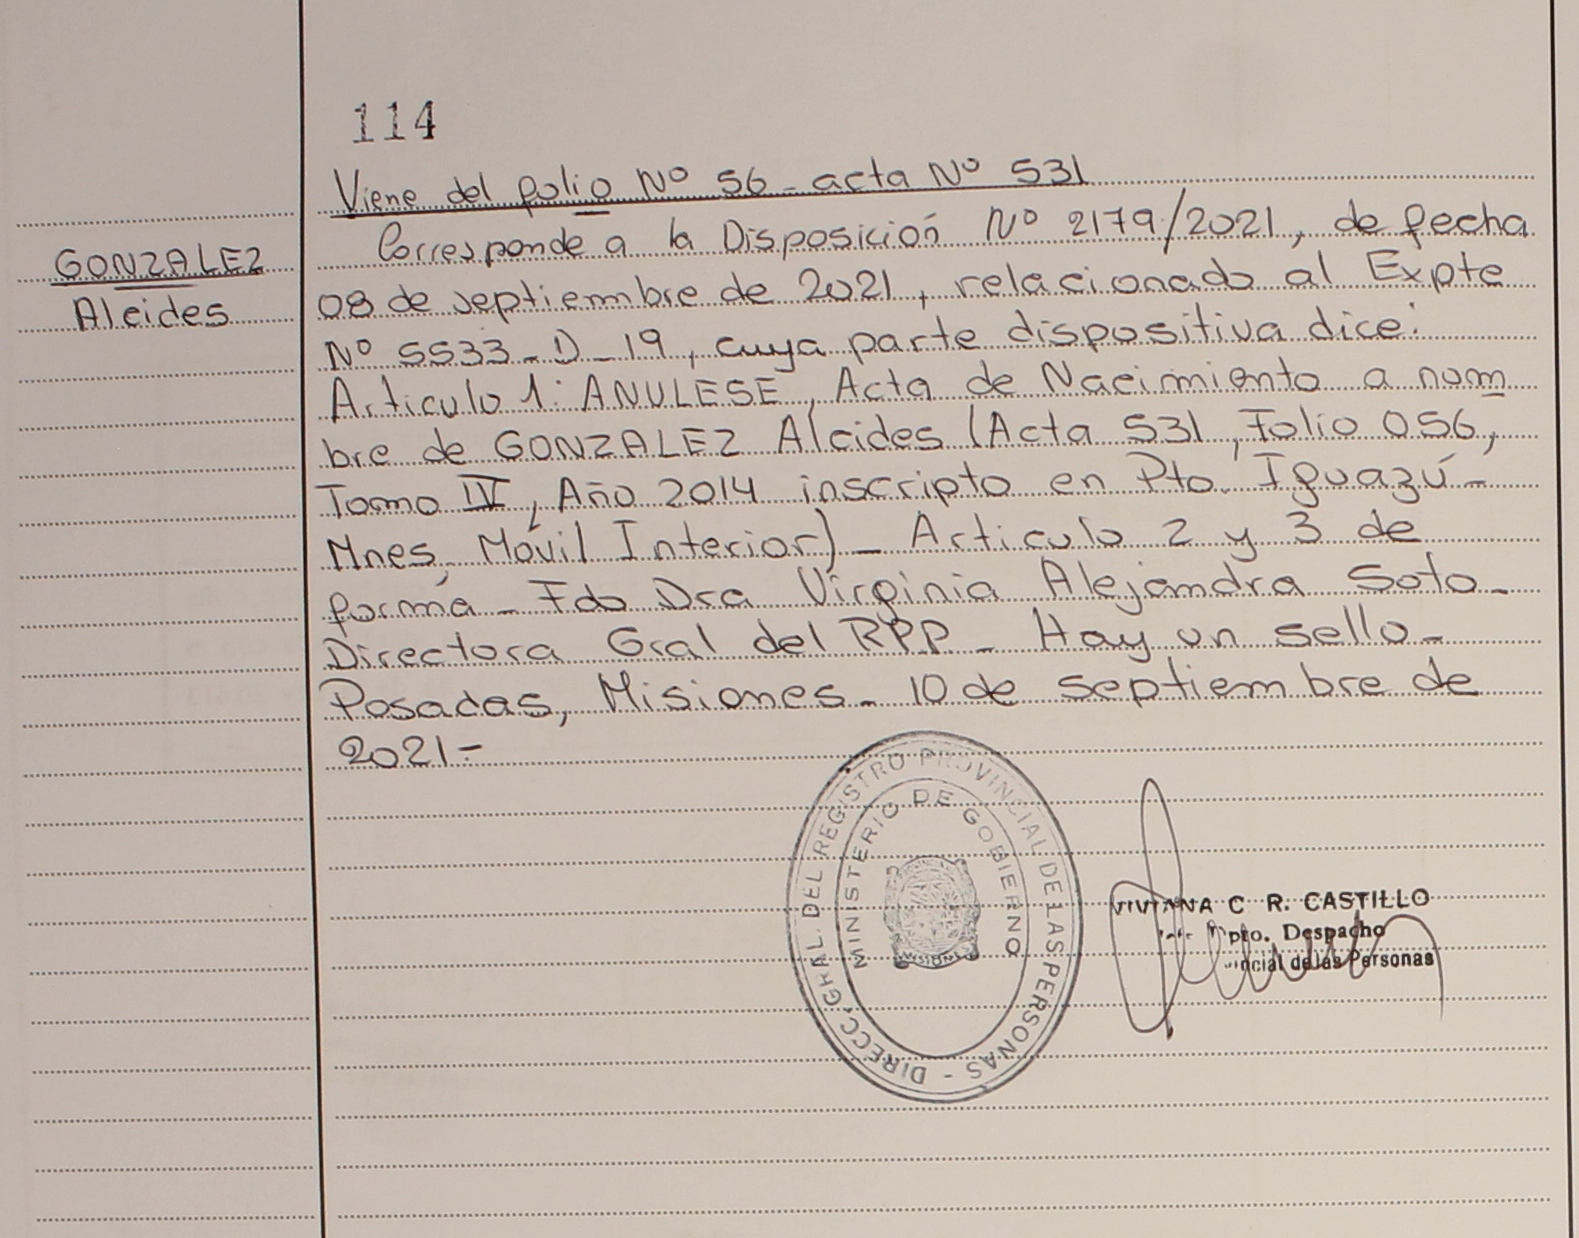 114
Viene del folio Nº 56 - acta Nº 531
GONZALEZ
Alcides
Corresponde a la Disposición Nº 2179/2021, de fecha
08 de septiembre de 2021, relacionado al Expte
Nº 5533 - D - 19, cuya parte dispositiva dice:
Articulo 1: ANULESE, Acta de Nacimiento a nom
bre de GONZALEZ Alcides (Acta 531, Folio 056,
Tomo IV, Año 2014 inscripto en Pto. Iguazú -
Mnes, Móvil Interior) - Articulo 2 y 3 de
forma - Fdo Dra Virginia Alejandra Soto -
Directora Gral del RPP - Hay un sello -
Posadas, Misiones - 10 de septiembre de
2021 -
DIRECC. GRAL. DEL REGISTRO PROVINCIAL DE LAS PERSONAS -
MINISTERIO DE GOBIERNO
MISIONES
VIVIANA C R. CASTILLO
Dpto. Despacho
de las Personas